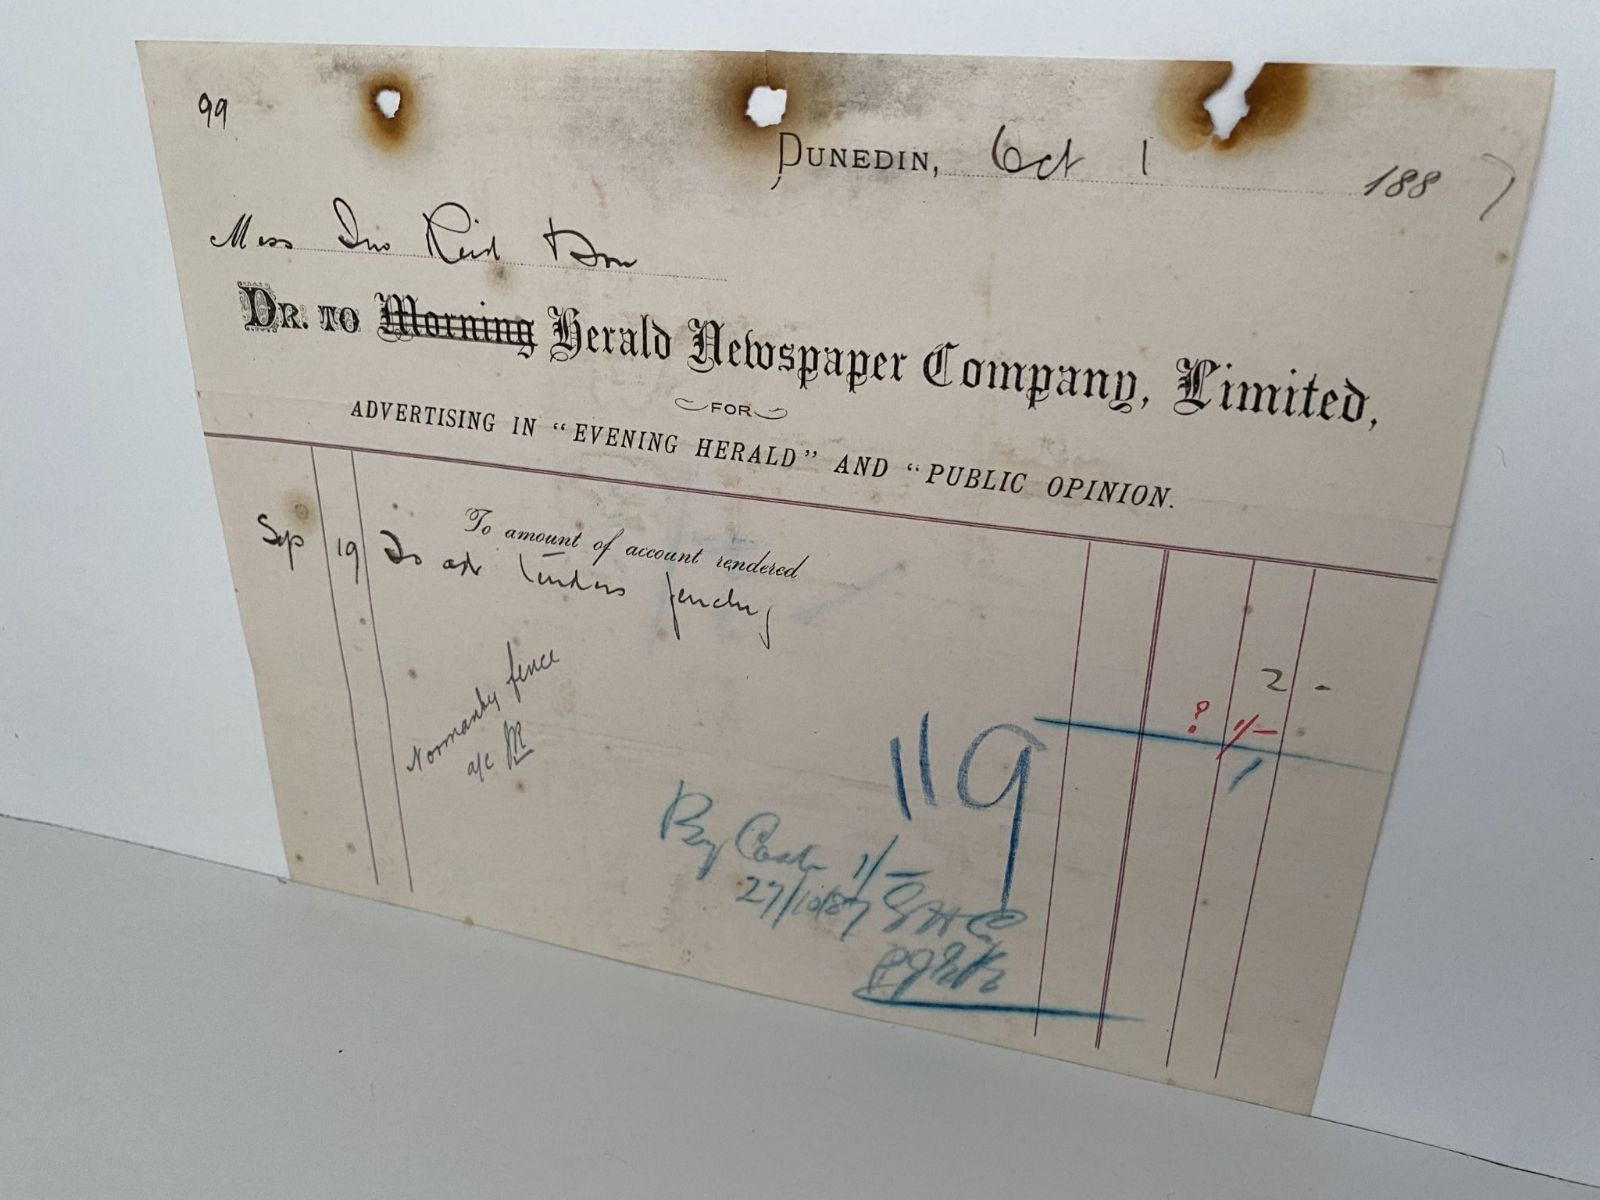 99
DUNEDIN, Oct 1 1887
Mess Jno Reid & Son
DR. TO Morning Herald Newspaper Company, Limited,
FOR
ADVERTISING IN "EVENING HERALD" AND "PUBLIC OPINION.
To amount of account rendered
Sep 19 To adv tenders fencing
2 -
? 1/-
1
Normanby fence
a/c JR
119
By Cash 1/-
27/10/87